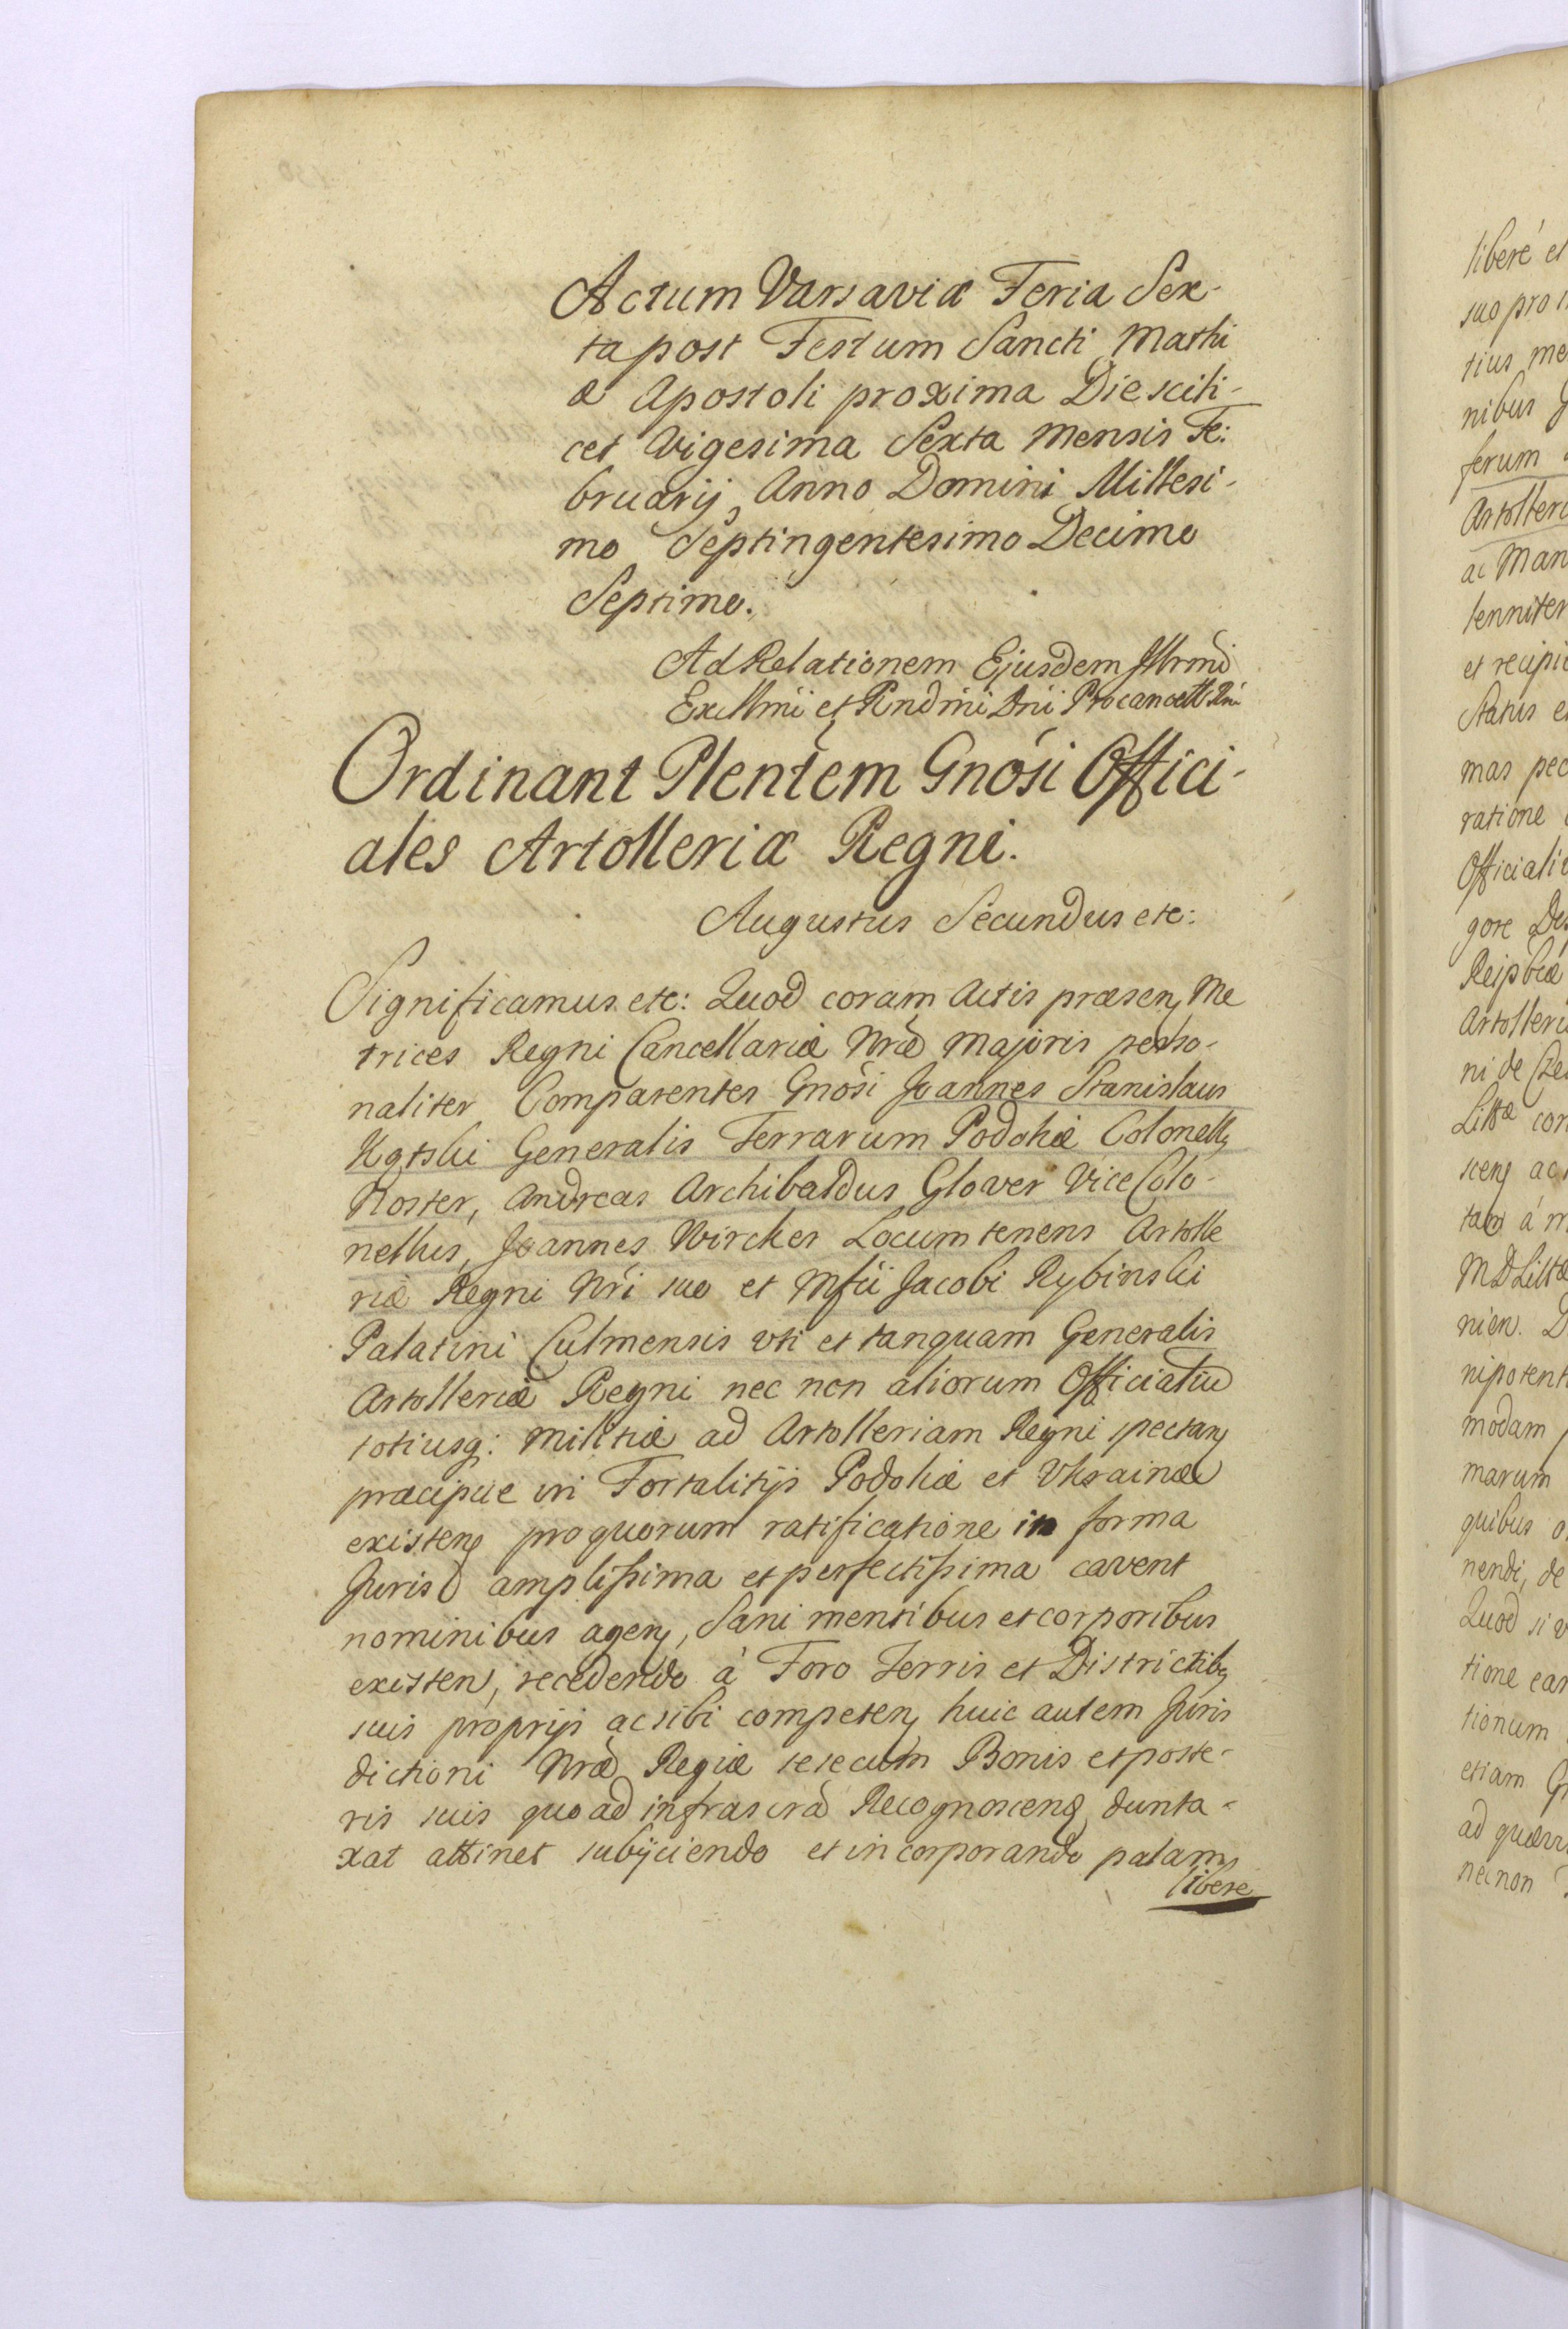 Actum Varsaviæ Feria Sex-
ta post Festum Sancti Mathi
æ Apostoli proxima Die scili-
cet Vigesima Sexta Mensis Fe:
bruarij, Anno Domini Millesi-
mo Septingentesimo Decimo
Septimo.
Ad Relationem Ejusdem Illrmi
Excllmi et Rndmi Dni Procancell Rni
Ordinant Plentem Gnosi Offici-
ales Artolleriæ Regni.
Augustus Secundus etc:
Significamus etc: Quod coram Actis præsen Me
trices Regni Cancellariæ Nræ Majoris perso-
naliter Comparentes Gnosi Joannes Stanislaus
Kątski Generalis Terrarum Podoliæ Colonell9
Noster, Andreas Archibaldus Glover Vice Colo-
nellus, Joannes Wircker Locumtenens Artolle
riæ Regni Nri suo et Mfci Jacobi Rybinski
Palatini Culmensis uti et tanquam Generalis
Artolleriæ Regni nec non aliorum Officialiu
totiusq: Militiæ ad Artolleriam Regni spectan
præcipue in Fortalitijs Podoliæ et Ukrainæ
existen pro quorum ratificatione in forma
Juris amplissima et perfectissima cavent
nominibus agen, Sani mentibus et corporibus
existen, recedendo à Foro Terris et Districtib9
suis proprijs ac sibi competen huic autem Juris
dictioni Nræ Regiæ sese cum Bonis et poste-
ris suis quo ad infrascrã Recognoscen dunta-
xat attinet subijciendo et incorporando palam
libere
liberé et
suo pro
tius me
nibus
ferum
Artolleri
ac Man
lenniter
et recipi
Status e
mas pec
ratione
Officiali
gore De
Reipbcæ
Artolleri
ni de
Littæ con
scen ac
tam á m
MDLittæ
nien. D
nipotent
modam
marum
quibus o
nendi, de
Quod si v
tione ear
tionum
etiam G
ad quæ
necnon